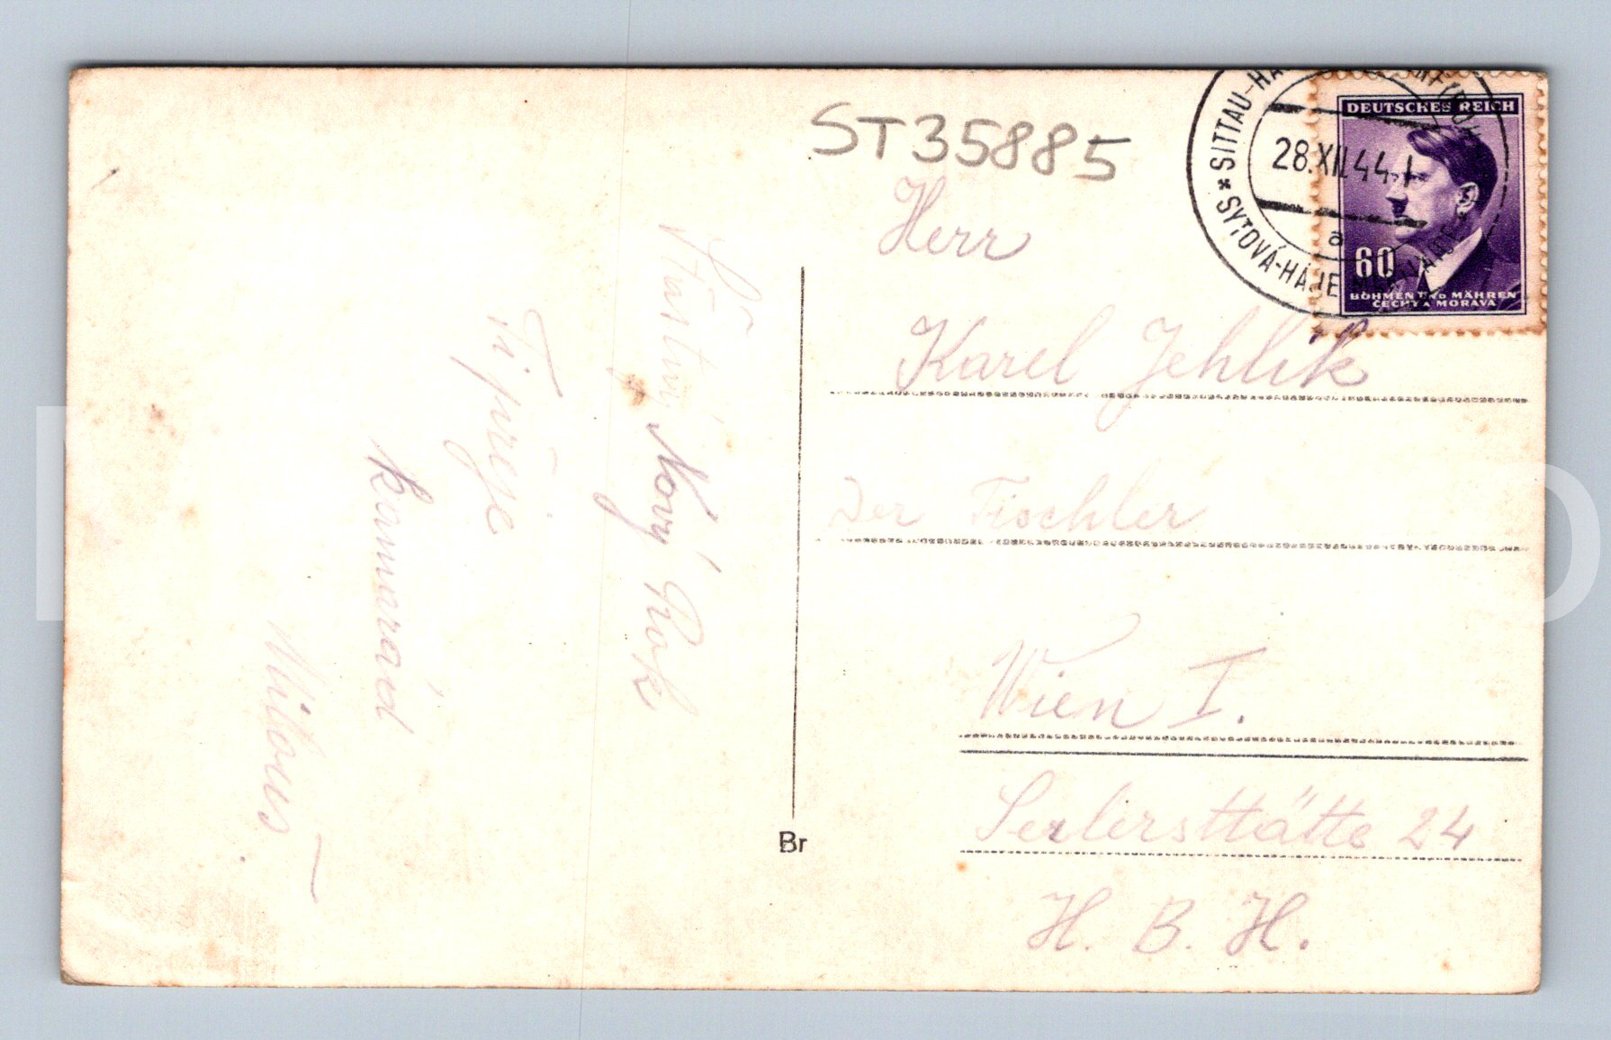 ST35885
DEUTSCHES REICH
28.XII.44-1
SITTAU-HA
SYTOVÁ-HÁJE
a
60
BÖHMEN UND MÄHREN
ČECHY A MORAVA
Šťastný Nový Rok
Ti přeje
kamarád
Milouš
Herr
Karel Jehlík
Der Tischler
Wien I.
Seilerstätte 24
H. B. H.
Br